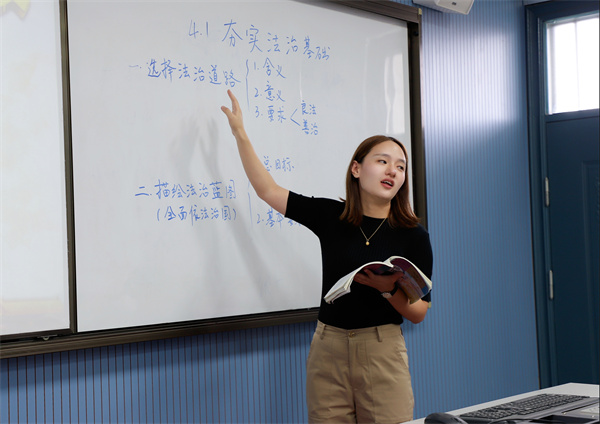 4.1 夯实法治基础
一.选择法治道路
1.含义
2.意义
3.要求
良法
善治
二.描绘法治蓝图
(全面依法治国)
总目标
2.基本